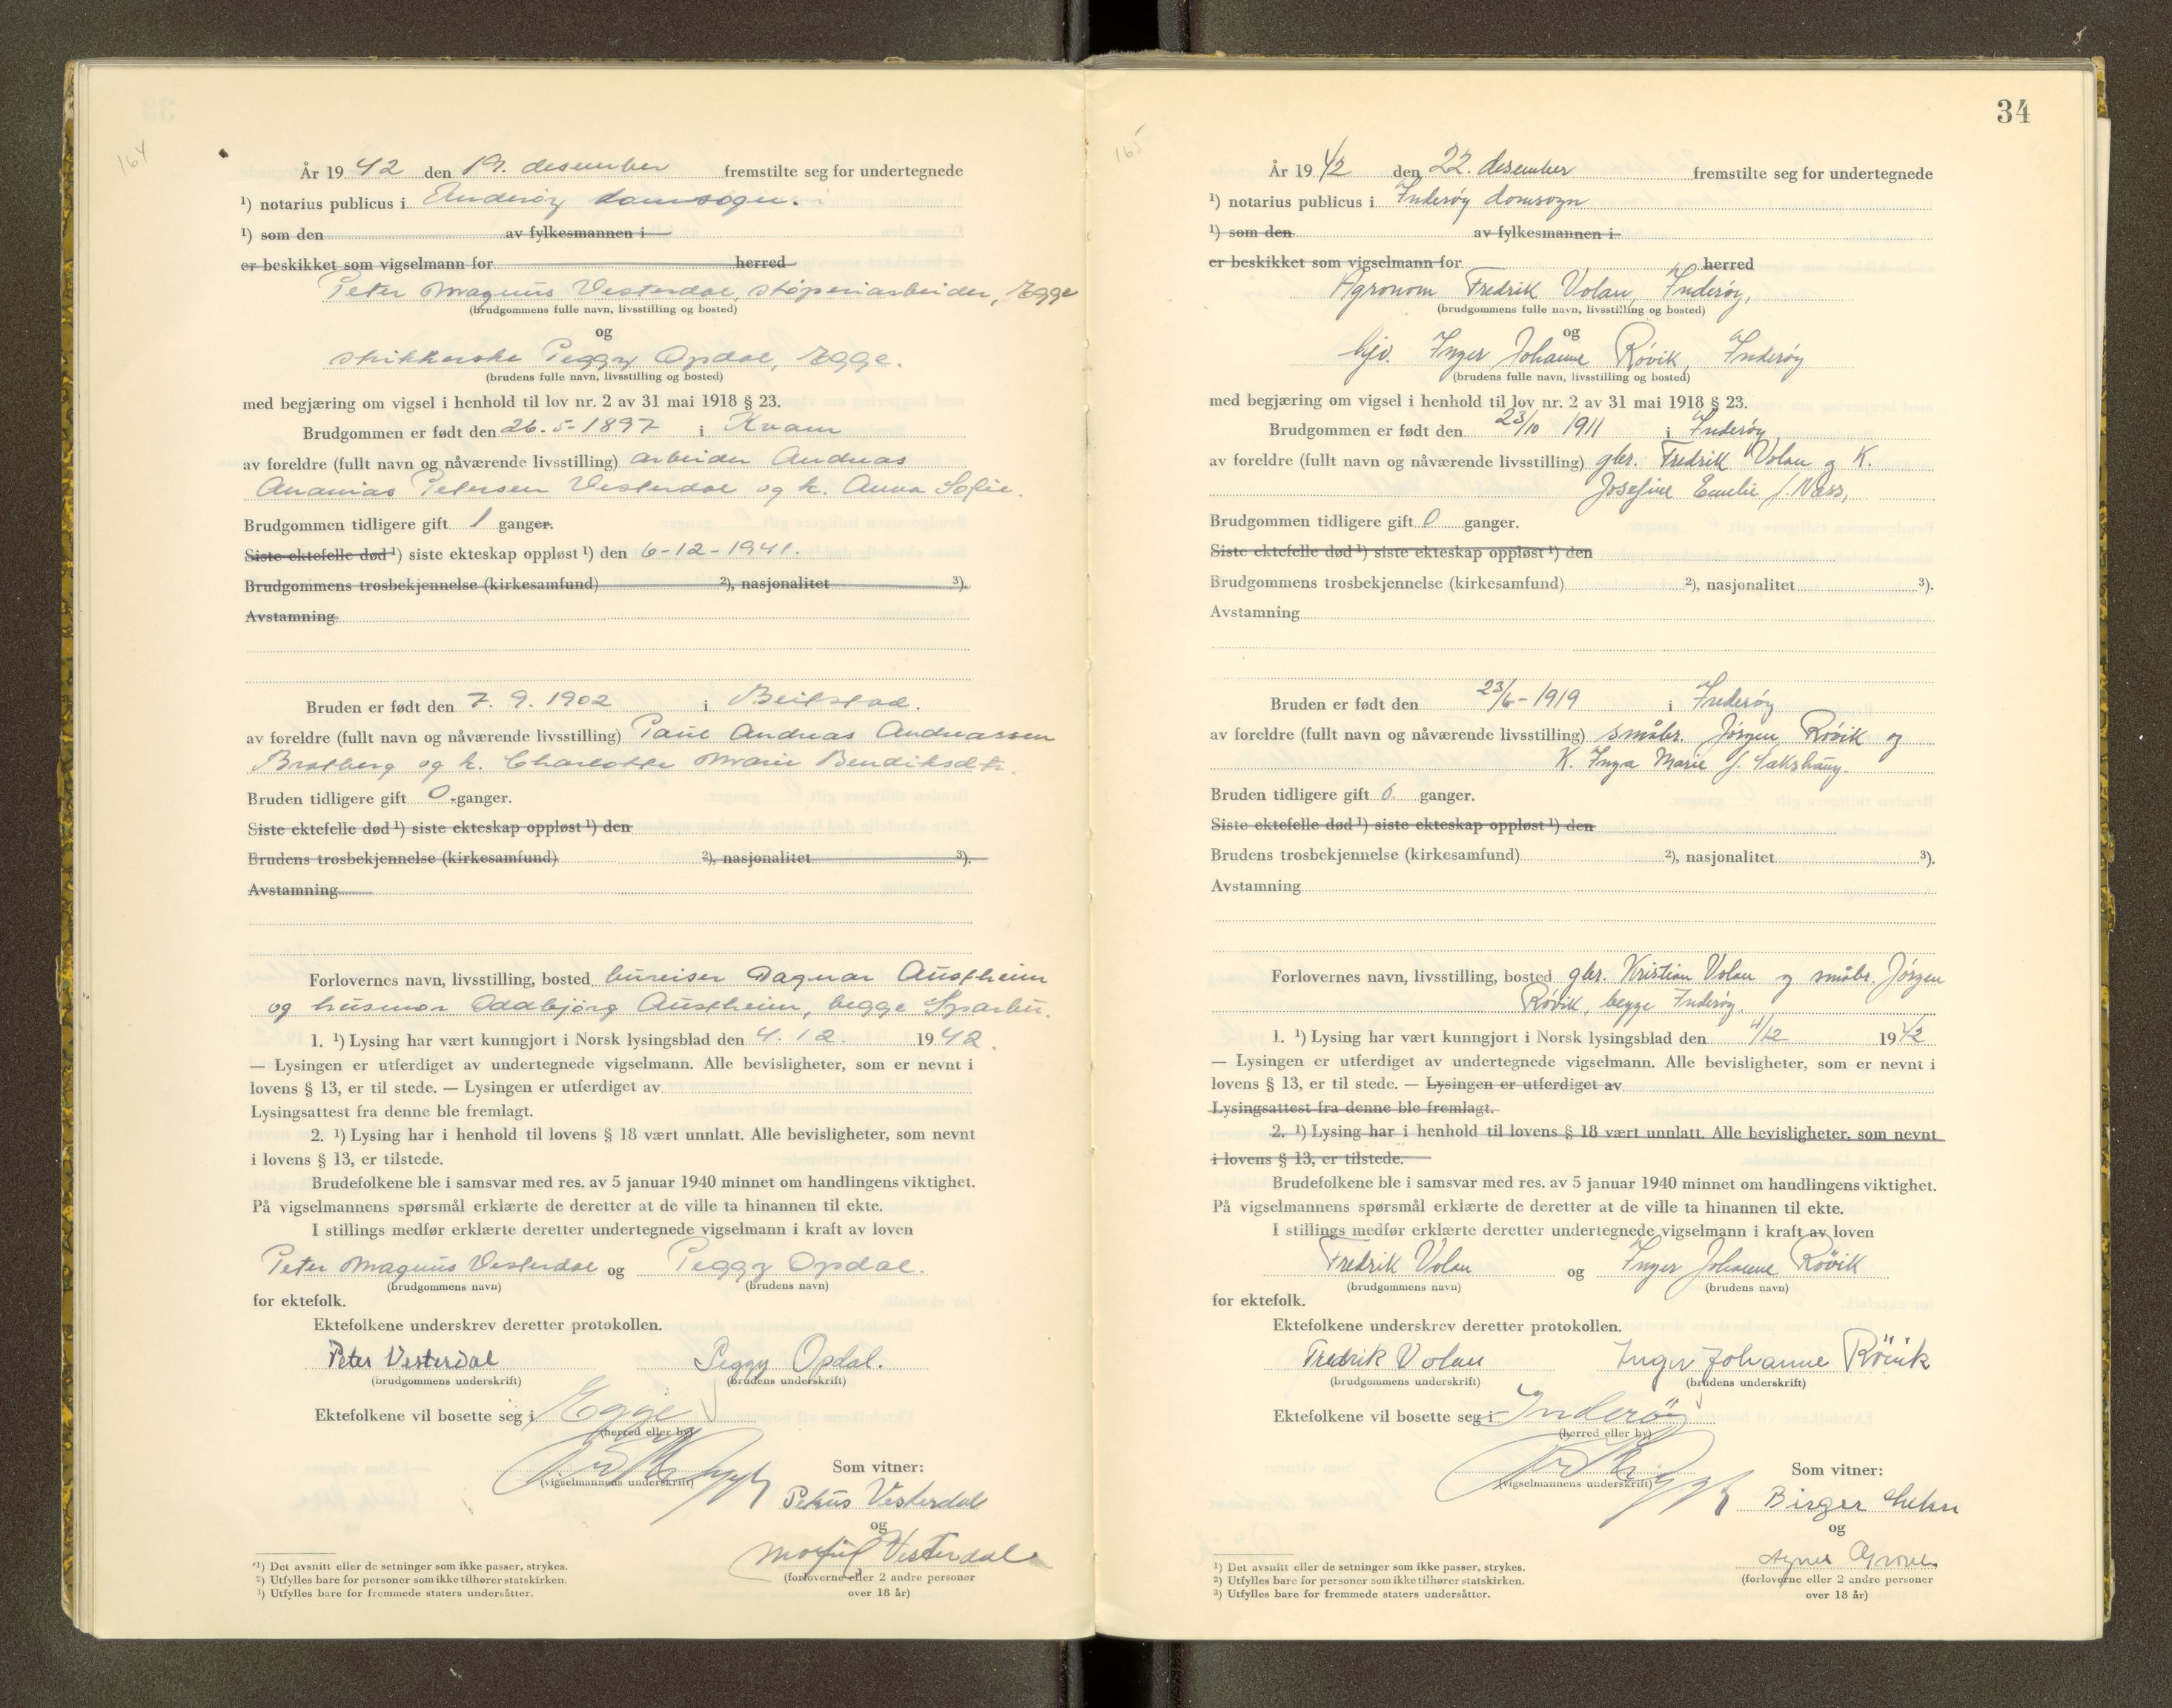 164
År 1942 den 19. desember fremstilte seg for undertegnede
¹) notarius publicus i Inderöy domsogn.
¹) som den av fylkesmannen i
er beskikket som vigselmann for herred
Peter Magnus Vesterdal, støperiarbeider, Egge
(brudgommens fulle navn, livsstilling og bosted)
og
strikkerske Peggy Opdal, Egge.
(brudens fulle navn, livsstilling og bosted)
med begjæring om vigsel i henhold til lov nr. 2 av 31 mai 1918 § 23.
Brudgommen er født den 26.5-1897 i Kvam
av foreldre (fullt navn og nåværende livsstilling) arbeider Andreas
Ananias Petersen Vesterdal og k. Anna Sofie.
Brudgommen tidligere gift 1 ganger.
Siste ektefelle død ¹) siste ekteskap oppløst ¹) den 6-12-1941.
Brudgommens trosbekjennelse (kirkesamfund) ²), nasjonalitet ³).
Avstamning
Bruden er født den 7. 9. 1902 i Beitstad.
av foreldre (fullt navn og nåværende livsstilling) Paul Andreas Andreassen
Bratberg og k. Charlotte Marie Bendiksdtr.
Bruden tidligere gift 0 ganger.
Siste ektefelle død ¹) siste ekteskap oppløst ¹) den
Brudens trosbekjennelse (kirkesamfund) ²), nasjonalitet ³).
Avstamning
Forlovernes navn, livsstilling, bosted bureiser Dagmar Austheim
og husmor Oddbjörg Austheim, begge Sparbu.
1. ¹) Lysing har vært kunngjort i Norsk lysingsblad den 4. 12. 1942.
— Lysingen er utferdiget av undertegnede vigselmann. Alle bevisligheter, som er nevnt i
lovens § 13, er til stede. — Lysingen er utferdiget av
Lysingsattest fra denne ble fremlagt.
2. ¹) Lysing har i henhold til lovens § 18 vært unnlatt. Alle bevisligheter, som nevnt
i lovens § 13, er tilstede.
Brudefolkene ble i samsvar med res. av 5 januar 1940 minnet om handlingens viktighet.
På vigselmannens spørsmål erklærte de deretter at de ville ta hinannen til ekte.
I stillings medfør erklærte deretter undertegnede vigselmann i kraft av loven
Peter Magnus Vesterdal og Peggy Opdal.
(brudgommens navn) (brudens navn)
for ektefolk.
Ektefolkene underskrev deretter protokollen.
Peter Vesterdal Peggy Opdal.
(brudgommens underskrift) (brudens underskrift)
Ektefolkene vil bosette seg i Egge
(herred eller by)
(vigselmannens underskrift)
Som vitner:
Petrus Vesterdal
og
Vesterdal
(forloverne eller 2 andre personer
over 18 år)
¹) Det avsnitt eller de setninger som ikke passer, strykes.
²) Utfylles bare for personer som ikke tilhører statskirken.
³) Utfylles bare for fremmede staters undersåtter.
34
165
År 1942 den 22. desember fremstilte seg for undertegnede
¹) notarius publicus i Inderøy domsogn
¹) som den av fylkesmannen i
er beskikket som vigselmann for herred
Agronom Fredrik Volan, Inderøy,
(brudgommens fulle navn, livsstilling og bosted)
og
hjv. Inger Johanne Røvik, Inderøy
(brudens fulle navn, livsstilling og bosted)
med begjæring om vigsel i henhold til lov nr. 2 av 31 mai 1918 § 23.
Brudgommen er født den 23/10 1911 i Inderøy
av foreldre (fullt navn og nåværende livsstilling) gbr. Fredrik Volan og K.
Josefine Emelie f. Næss,
Brudgommen tidligere gift 0 ganger.
Siste ektefelle død ¹) siste ekteskap oppløst ¹) den
Brudgommens trosbekjennelse (kirkesamfund) ²), nasjonalitet ³).
Avstamning
Bruden er født den 23/6-1919 i Inderøy
av foreldre (fullt navn og nåværende livsstilling) småbr. Jørgen Røvik og
K. Inga Marie f. Sakshaug.
Bruden tidligere gift 0. ganger.
Siste ektefelle død ¹) siste ekteskap oppløst ¹) den
Brudens trosbekjennelse (kirkesamfund) ²), nasjonalitet ³).
Avstamning
Forlovernes navn, livsstilling, bosted gbr. Kristian Volan og småbr. Jørgen
Røvik, begge Inderøy.
1. ¹) Lysing har vært kunngjort i Norsk lysingsblad den 4/12 1942
— Lysingen er utferdiget av undertegnede vigselmann. Alle bevisligheter, som er nevnt i
lovens § 13, er til stede. — Lysingen er utferdiget av
Lysingsattest fra denne ble fremlagt.
2. ¹) Lysing har i henhold til lovens § 18 vært unnlatt. Alle bevisligheter, som nevnt
i lovens § 13, er tilstede.
Brudefolkene ble i samsvar med res. av 5 januar 1940 minnet om handlingens viktighet.
På vigselmannens spørsmål erklærte de deretter at de ville ta hinannen til ekte.
I stillings medfør erklærte deretter undertegnede vigselmann i kraft av loven
Fredrik Volan og Inger Johanne Røvik
(brudgommens navn) (brudens navn)
for ektefolk.
Ektefolkene underskrev deretter protokollen.
Fredrik Volan Inger Johanne Röivik
(brudgommens underskrift) (brudens underskrift)
Ektefolkene vil bosette seg i Inderöy
(herred eller by)
(vigselmannens underskrift)
Som vitner:
Birger
og
Agnes
(forloverne eller 2 andre personer
over 18 år)
¹) Det avsnitt eller de setninger som ikke passer, strykes.
²) Utfylles bare for personer som ikke tilhører statskirken.
³) Utfylles bare for fremmede staters undersåtter.